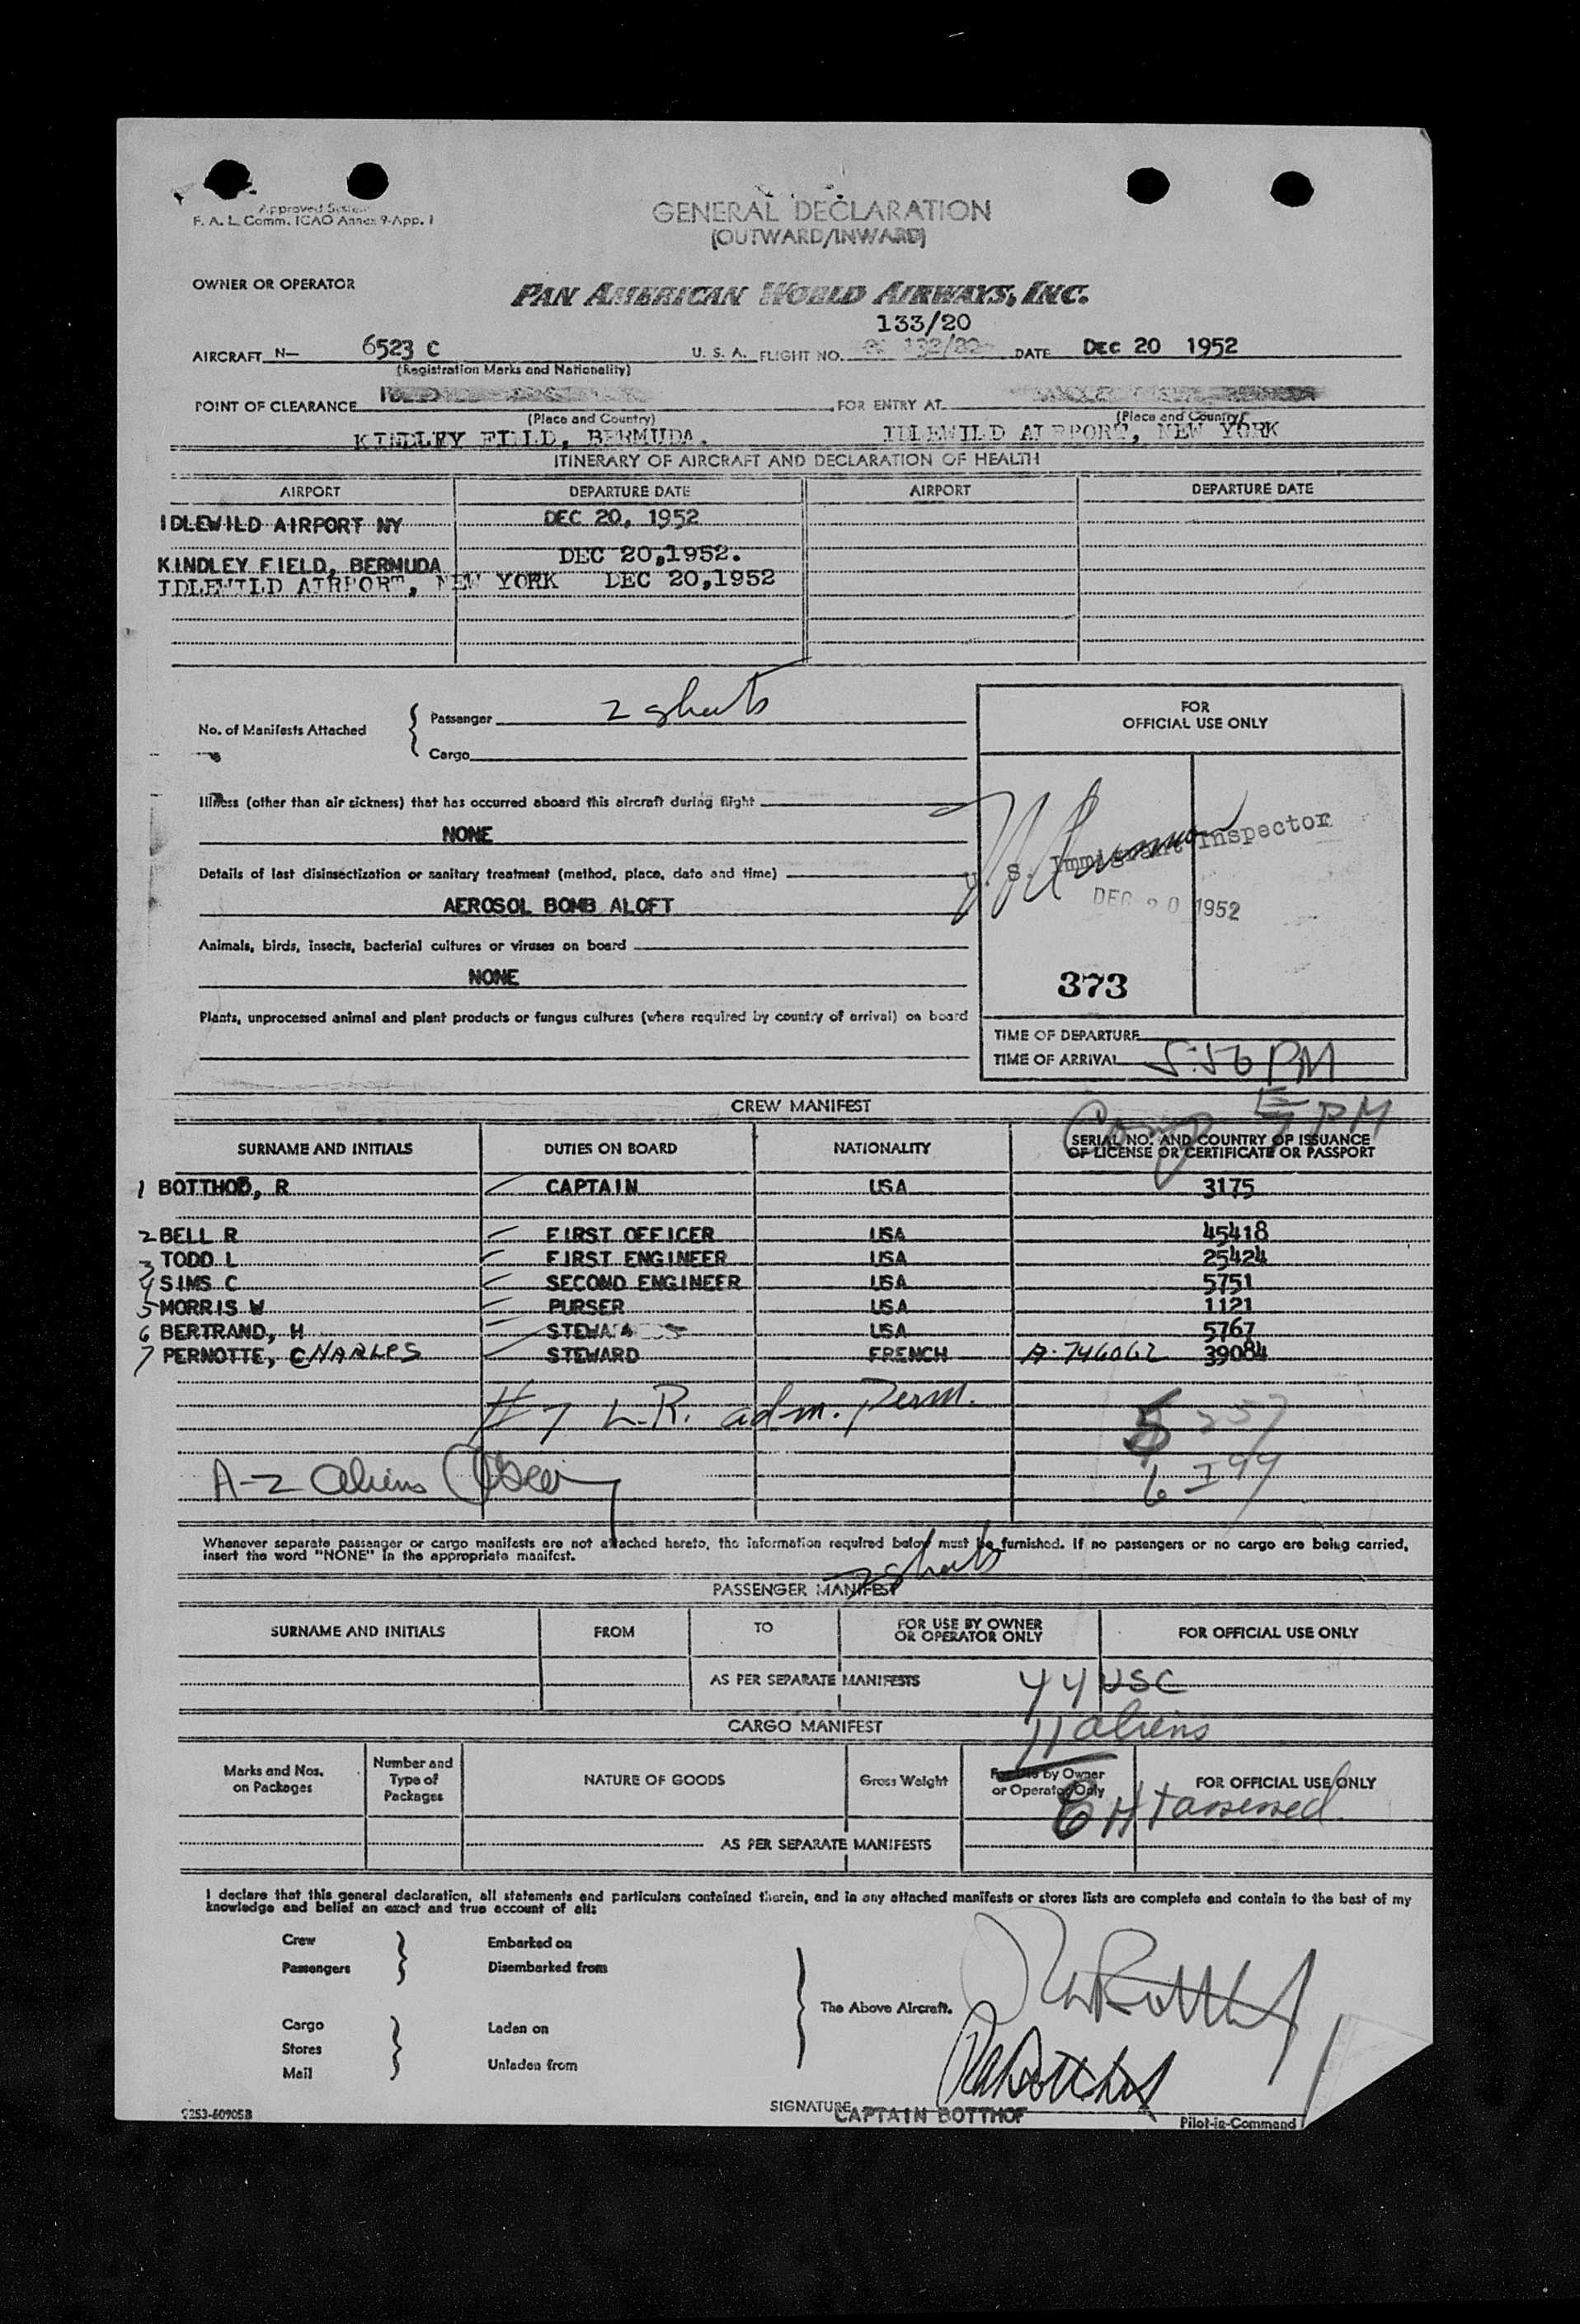 Approved
F. A. L. Comm. ICAO Annex 9-App. 1
GENERAL DECLARATION
(OUTWARD/INWARD)
OWNER OR OPERATOR
PAN AMERICAN WORLD AIRWAYS, INC.
133/20
AIRCRAFT N— 6523 C U. S. A. FLIGHT NO. DATE DEC 20 1952
(Registration Marks and Nationality)
POINT OF CLEARANCE FOR ENTRY AT
(Place and Country) (Place and Country)
KINDLEY FIELD, BERMUDA. IDLEWILD AIRPORT, NEW YORK
ITINERARY OF AIRCRAFT AND DECLARATION OF HEALTH
AIRPORT DEPARTURE DATE AIRPORT DEPARTURE DATE
IDLEWILD AIRPORT NY DEC 20, 1952
KINDLEY FIELD, BERMUDA DEC 20,1952.
IDLEWILD AIRPORT, NEW YORK DEC 20,1952
No. of Manifests Attached
Passenger 2 sheets
Cargo
FOR
OFFICIAL USE ONLY
Illness (other than air sickness) that has occurred aboard this aircraft during flight
NONE
U. S. Immigrant Inspector
DEC 20 1952
Details of last disinsectization or sanitary treatment (method, place, date and time)
AEROSOL BOMB ALOFT
Animals, birds, insects, bacterial cultures or viruses on board
NONE
373
Plants, unprocessed animal and plant products or fungus cultures (where required by country of arrival) on board
TIME OF DEPARTURE
TIME OF ARRIVAL 5:56 PM
CREW MANIFEST
SURNAME AND INITIALS DUTIES ON BOARD NATIONALITY SERIAL NO. AND COUNTRY OF ISSUANCE
OF LICENSE OR CERTIFICATE OR PASSPORT
1 BOTTHOF, R CAPTAIN USA 3175
2 BELL R FIRST OFFICER USA 45418
3 TODD L FIRST ENGINEER USA 25424
4 SIMS C SECOND ENGINEER USA 5751
5 MORRIS W PURSER USA 1121
6 BERTRAND, H USA 5767
7 PERNOTTE, CHARLES STEWARD FRENCH A-746062 39084
#7 L.R. adm. perm.
A-2 aliens
Whenever separate passenger or cargo manifests are not attached hereto, the information required below must be furnished. If no passengers or no cargo are being carried,
insert the word "NONE" in the appropriate manifest.
2 sheets
PASSENGER MANIFEST
SURNAME AND INITIALS FROM TO FOR USE BY OWNER
OR OPERATOR ONLY FOR OFFICIAL USE ONLY
AS PER SEPARATE MANIFESTS 44 USC
CARGO MANIFEST 11 aliens
Marks and Nos.
on Packages Number and
Type of
Packages NATURE OF GOODS Gross Weight For Use by Owner
or Operator Only FOR OFFICIAL USE ONLY
8 HT assessed.
AS PER SEPARATE MANIFESTS
I declare that this general declaration, all statements and particulars contained therein, and in any attached manifests or stores lists are complete and contain to the best of my
knowledge and belief an exact and true account of all:
Crew Embarked on
Passengers Disembarked from
The Above Aircraft.
Cargo Laden on
Stores
Mail Unladen from
SIGNATURE CAPTAIN BOTTHOF Pilot-in-Command
9253-60905B